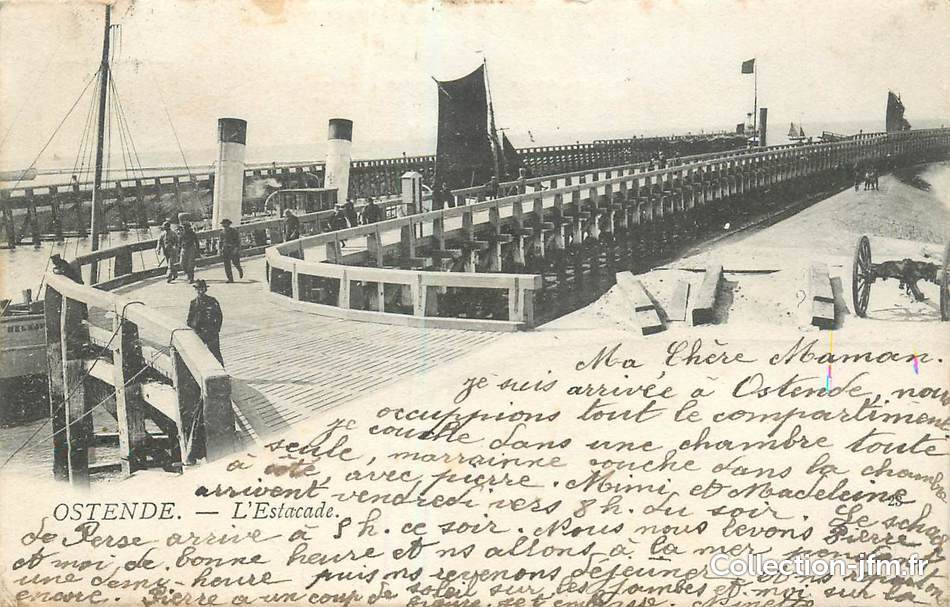 Ma Chère Maman.
je suis arrivée à Ostende, nous
occuppions tout le compartiment
je couche dans une chambre toute
seule, marrainne couche dans la chambre
à côté, avec pierre. Mimi et Madeleine
arrivent vendredi vers 8h. du soir. Le schah
OSTENDE. — L'Estacade.
28
de Perse arrive à 5 h. ce soir. Nous nous levons Pierre
et moi de bonne heure et ns allons à la mer
une demi-heure puis ns revenons déjeuner et ns
encore. Pierre a un coup de soleil sur les jambes et moi sur la
Collection-jfm.fr